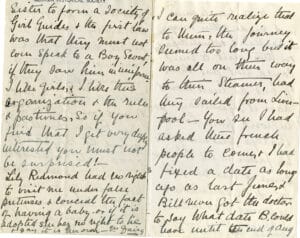 HISTORICAL SOCIETY
Sister to form a Society of
Girl Guides & the first law
was that they must not
even speak to a Boy Scout,
if they saw him in uniform
I like Girls, I like this
organization & the rules
& pastimes. So if you
find that I get very deeply
interested you must not
be surprised! -
Lily Redmond had no right
to visit me under false
pretences & conceal the fact
of having a baby. or if it is
adopted she has no right to
I can quite realize that
to them, the journey
seemed too long but it
was all on their way
to their Steamer, had
they sailed from Liver-
pool - You see I had
asked these french
people to come, & had
fixed a date as long
ago as last June, &
Bill never got the doctor
to say what date B. could
have until the end of Aug